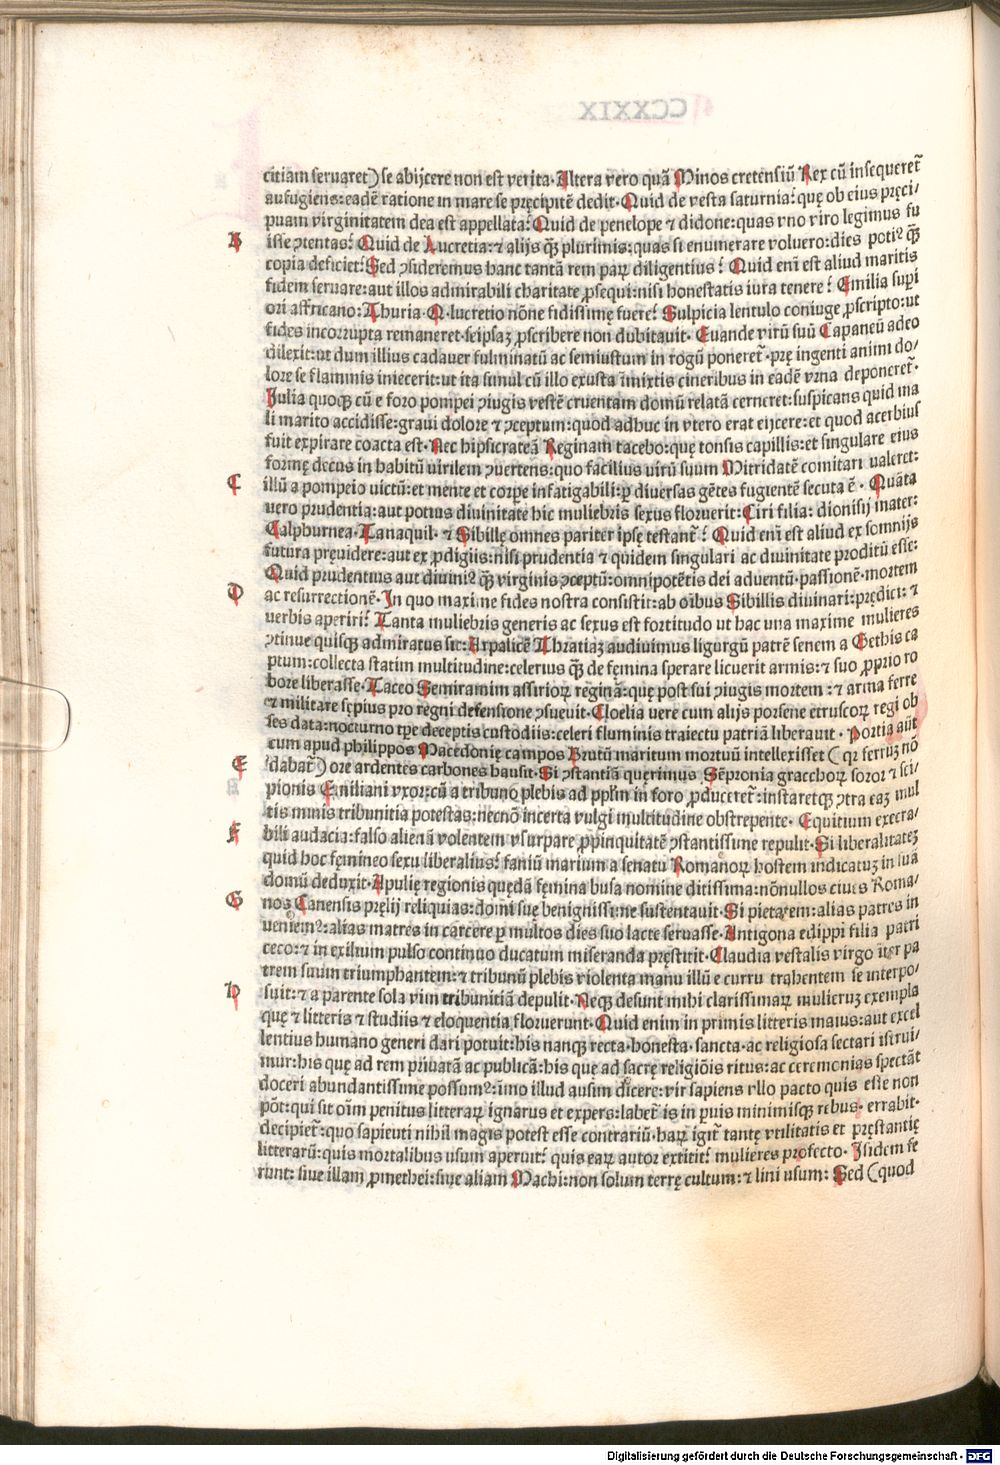 citiam seruaret) se abijcere non est verita. Altera vero quā Minos cretensiū Rex cū insequeret̄
aufugiens: eadē ratione in mare se pręcipitē dedit. Quid de vesta saturnia: quę ob eius pręci/
puam virginitatem dea est appellata: Quid de penelope ⁊ didone: quas vno viro legimus fu
B
isse ꝯtentas: Quid de Lucretia: ⁊ alijs qꝫ̄ plurimis: quas si enumerare voluero: dies potiꝰ qꝫ̄
copia deficiet: Sed ꝯsideremus hanc tantā rem paꝝ diligentius: Quid eni est aliud maritis
fidem seruare: aut illos admirabili charitate ꝓsequi: nisi honestatis iura tenere: Emilia supi
ori affricano: Thuria. Q. lucretio nōne fidissimę fuere: Sulpicia lentulo coniuge ꝓscripto: ut
fides incorrupta remaneret. seipsaꝫ ꝓscribere non dubitauit. Euande virū suū Capaneū adeo
dilexit: ut dum illius cadauer fulminatū ac semiustum in rogū poneret̄. prę ingenti animi do/
lore se flammis iniecerit: ut ita simul cū illo exusta imixtis cineribus in eadē vrna deponeret̄.
Julia quoqꝫ cū e foro pompei ꝯiugis vestē cruentam domū relatā cerneret: suspicans quid ma
li marito accidisse: graui dolore ⁊ ꝯceptum: quod adhuc in vtero erat eijcere: et quod acerbius
fuit expirare coacta est. Nec hipsicrateā Reginam tacebo: que tonsis capillis: et singulare eius
formę decus in habitū virilem ꝯuertens: quo facilius virū suum Mitridatē comitari valeret:
C
illū a pompeio victū: et mente et corpe infatigabili: ꝑ diuersas gētes fugientē secuta ē. Quāta
vero prudentia: aut potius diuinitate hic muliebris sexus floruerit: Ciri filia: dionisij mater:
Calphurnea. Tanaquil. ⁊ Sibillę omnes pariter ipsę testant̄: Quid eni est aliud ex somnijs
futura pręuidere: aut ex ꝓdigiis: nisi prudentia ⁊ quidem singulari ac diuinitate proditū esse:
Quid prudentius aut diuiniꝰ qꝫ̄ virginis ꝯceptū: omnipotētis dei aduentū. passionē. mortem
D
ac resurrectionē. In quo maxime fides nostra consistit: ab oibus Sibillis diuinari: prędici: ⁊
verbis aperiri: Tanta muliebris generis ac sexus est fortitudo ut hac una maxime mulieres
ꝯtinue quisqꝫ admiratus sit: Arpalicē Thratiaꝫ audiuimus ligurgū patrē senem a Gethis ca
ptum: collecta statim multitudine: celerius qꝫ̄ de fęmina sperare licuerit armis: ⁊ suo ꝓprio ro
bore liberasse. Taceo Semiramim assirioꝝ reginā: quę post sui ꝯiugis mortem: ⁊ arma ferre
⁊ militare sępius pro regni defensione ꝯsueuit. Cloelia vere cum alijs porsene etruscoꝝ regi ob
ses data: nocturno tpe deceptis custodiis: celeri fluminis traiectu patriā liberauit. Portia aūt
cum apud philippos Macedonię campos Brutū maritum mortuū intellexisset (qr ferruꝫ nō
E
dabat̄) ore ardentes carbones hausit. Si ꝯstantiā querimus Sēpronia gracchoꝝ soror ⁊ sci/
pionis Emiliani vxor: cū a tribuno plebis ad pplm in foro ꝓduceret̄: instaretqꝫ ꝯtra eaꝫ mul
tis minis tribunitia potestas: necnō incerta vulgi multitudine obstrepente. Equitium execra/
F
bili audacia: falso alienā volentem vsurpare ꝓpinquitatē ꝯstantissime repulit. Si liberalitateꝫ
quid hoc fęmineo sexu liberalius: faniū marium a senatu Romanoꝝ hostem indicatuꝫ in suā
domū deduxit. Apulię regionis quędā fęmina busa nomine ditissima: nōnullos ciues Roma/
G
nos Canensis pręlij reliquias: domi suę benignissime sustentauit. Si pietatem: alias patres in
ueniemꝰ: alias matres in carcere ꝑ multos dies suo lacte seruasse. Antigona edippi filia patri
ceco: ⁊ in exilium pulso continuo ducatum miseranda pręstitit. Claudia vestalis virgo iter pa
trem suum triumphantem: ⁊ tribunū plebis violenta manu illū e curru trahentem se interpo/
H
suit: ⁊ a parente sola vim tribunitiā depulit. Neqꝫ desunt mihi clarissimaꝝ mulieruꝫ exempla
quę ⁊ litteris ⁊ studiis ⁊ eloquentia floruerunt. Quid enim in primis litteris maius: aut excel
lentius humano generi dari potuit: his nanqꝫ recta. honesta. sancta. ac religiosa sectari istrui/
mur: his quę ad rem priuatā ac publicā: his que ad sacrę religiois ritus: ac ceremonias spectāt
doceri abundantissime possumꝰ: imo illud ausim dicere: vir sapiens vllo pacto quis esse non
pōt: qui sit oim penitus litteraꝝ ignarus et expers: labet̄ is in ꝑuis minimisqꝫ rebus. errabit.
decipiet̄: quo sapienti nihil magis potest esse contrariū. haꝝ igit̄ tantę vtilitatis et pręstantię
litterarū: quis mortalibus usum aperuit: quis eaꝝ autor extitit: mulieres profecto. Isidem fe
runt: siue illam ꝓmethei: siue aliam Machi: non solum terrę cultum: ⁊ lini usum: Sed (quod
Digitalisierung gefördert durch die Deutsche Forschungsgemeinschaft - DFG